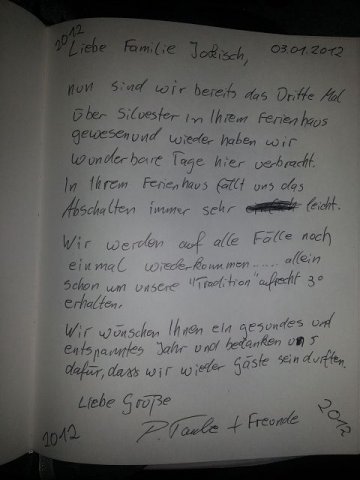 2012
Liebe Familie Jokisch, 03.01.2012
nun sind wir bereits das Dritte Mal
über Silvester in Ihrem Ferienhaus
gewesen und wieder haben wir
wunderbare Tage hier verbracht.
In Ihrem Ferienhaus fällt uns das
Abschalten immer sehr leicht.
Wir werden auf alle Fälle noch
einmal wiederkommen..... allein
schon um unsere "Tradition" aufrecht zu
erhalten.
Wir wünschen Ihnen ein gesundes und
entspanntes Jahr und bedanken uns
dafür, dass wir wieder Gäste sein durften.
Liebe Grüße
2012 + Freunde 2012